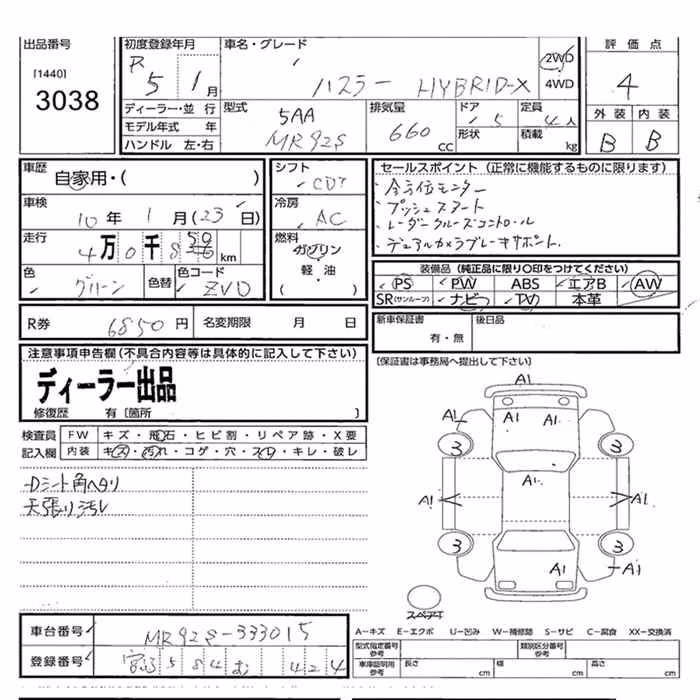 出品番号
[1440]
3038
初度登録年月
R 5 1月
車名・グレード
ハスラー HYBRID-X
2WD
4WD
評価点
4
外装 内装
B B
ディーラー・並行
モデル年式 年
ハンドル 左・右
型式
5AA
MR92S
排気量
660 cc
ドア 5
形状
定員 4人
積載 kg
車歴
自家用・( )
車検
10年 1月(23日)
走行
4万0千8 km
色
グリーン
色替
色コード
ZVD
シフト
CDT
冷房
AC
燃料
ガソリン
軽・油
( )
セールスポイント (正常に機能するものに限ります)
・全方位モニター
・プッシュスタート
・レーダークルーズコントロール
・デュアルカメラブレーキサポート.
装備品 (純正品に限り〇印をつけてください)
PS PW ABS エアB AW
SR(サンルーフ) ナビ TV 本革
R券 6850円 名変期限 月 日
新車保証書
有・無
後日品
(保証書は事務局へ提出して下さい)
注意事項申告欄(不具合内容等は具体的に記入して下さい)
ディーラー出品
修復歴 有〔箇所 〕
検査員
記入欄
FW キズ・飛石・ヒビ割・リペア跡・X要
内装 キズ・汚れ・コゲ・穴・スレ・キレ・破レ
Dシート角ヘタリ
天張り汚レ
A1
A1 A1 A1
3 3
A1
A1 A1
3 3
A1 A1
スペア
車台番号 MR92S-333015
登録番号 宮 584 む 424
A-キズ E-エクボ U-凹み W-補修跡 S-サビ C-腐食 XX-交換済
型式指定番号
参考
類別区分番号
参考
車庫証明用
参考
長さ cm 幅 cm 高さ cm